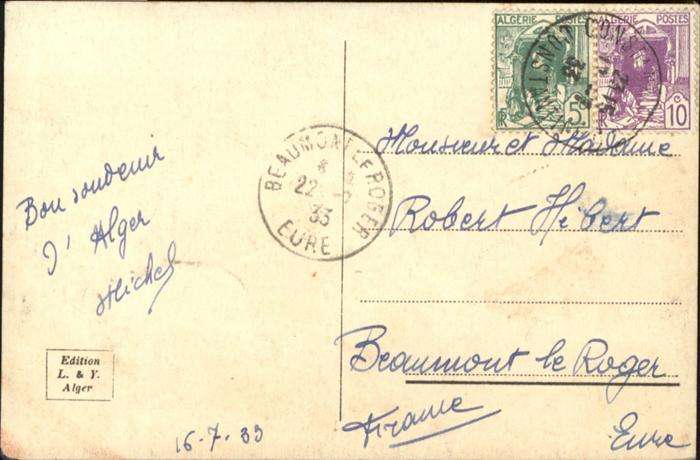 Bon souvenir
d'Alger
Michel
Edition
L. & Y.
Alger
16-7-33
ALGERIE POSTES
5c
RF
ALGERIE POSTES
10c
CONSTANTINE
BEAUMONT LE ROGER
22
33
EURE
Monsieur et Madame
Robert Hébert
Beaumont le Roger
France
Eure